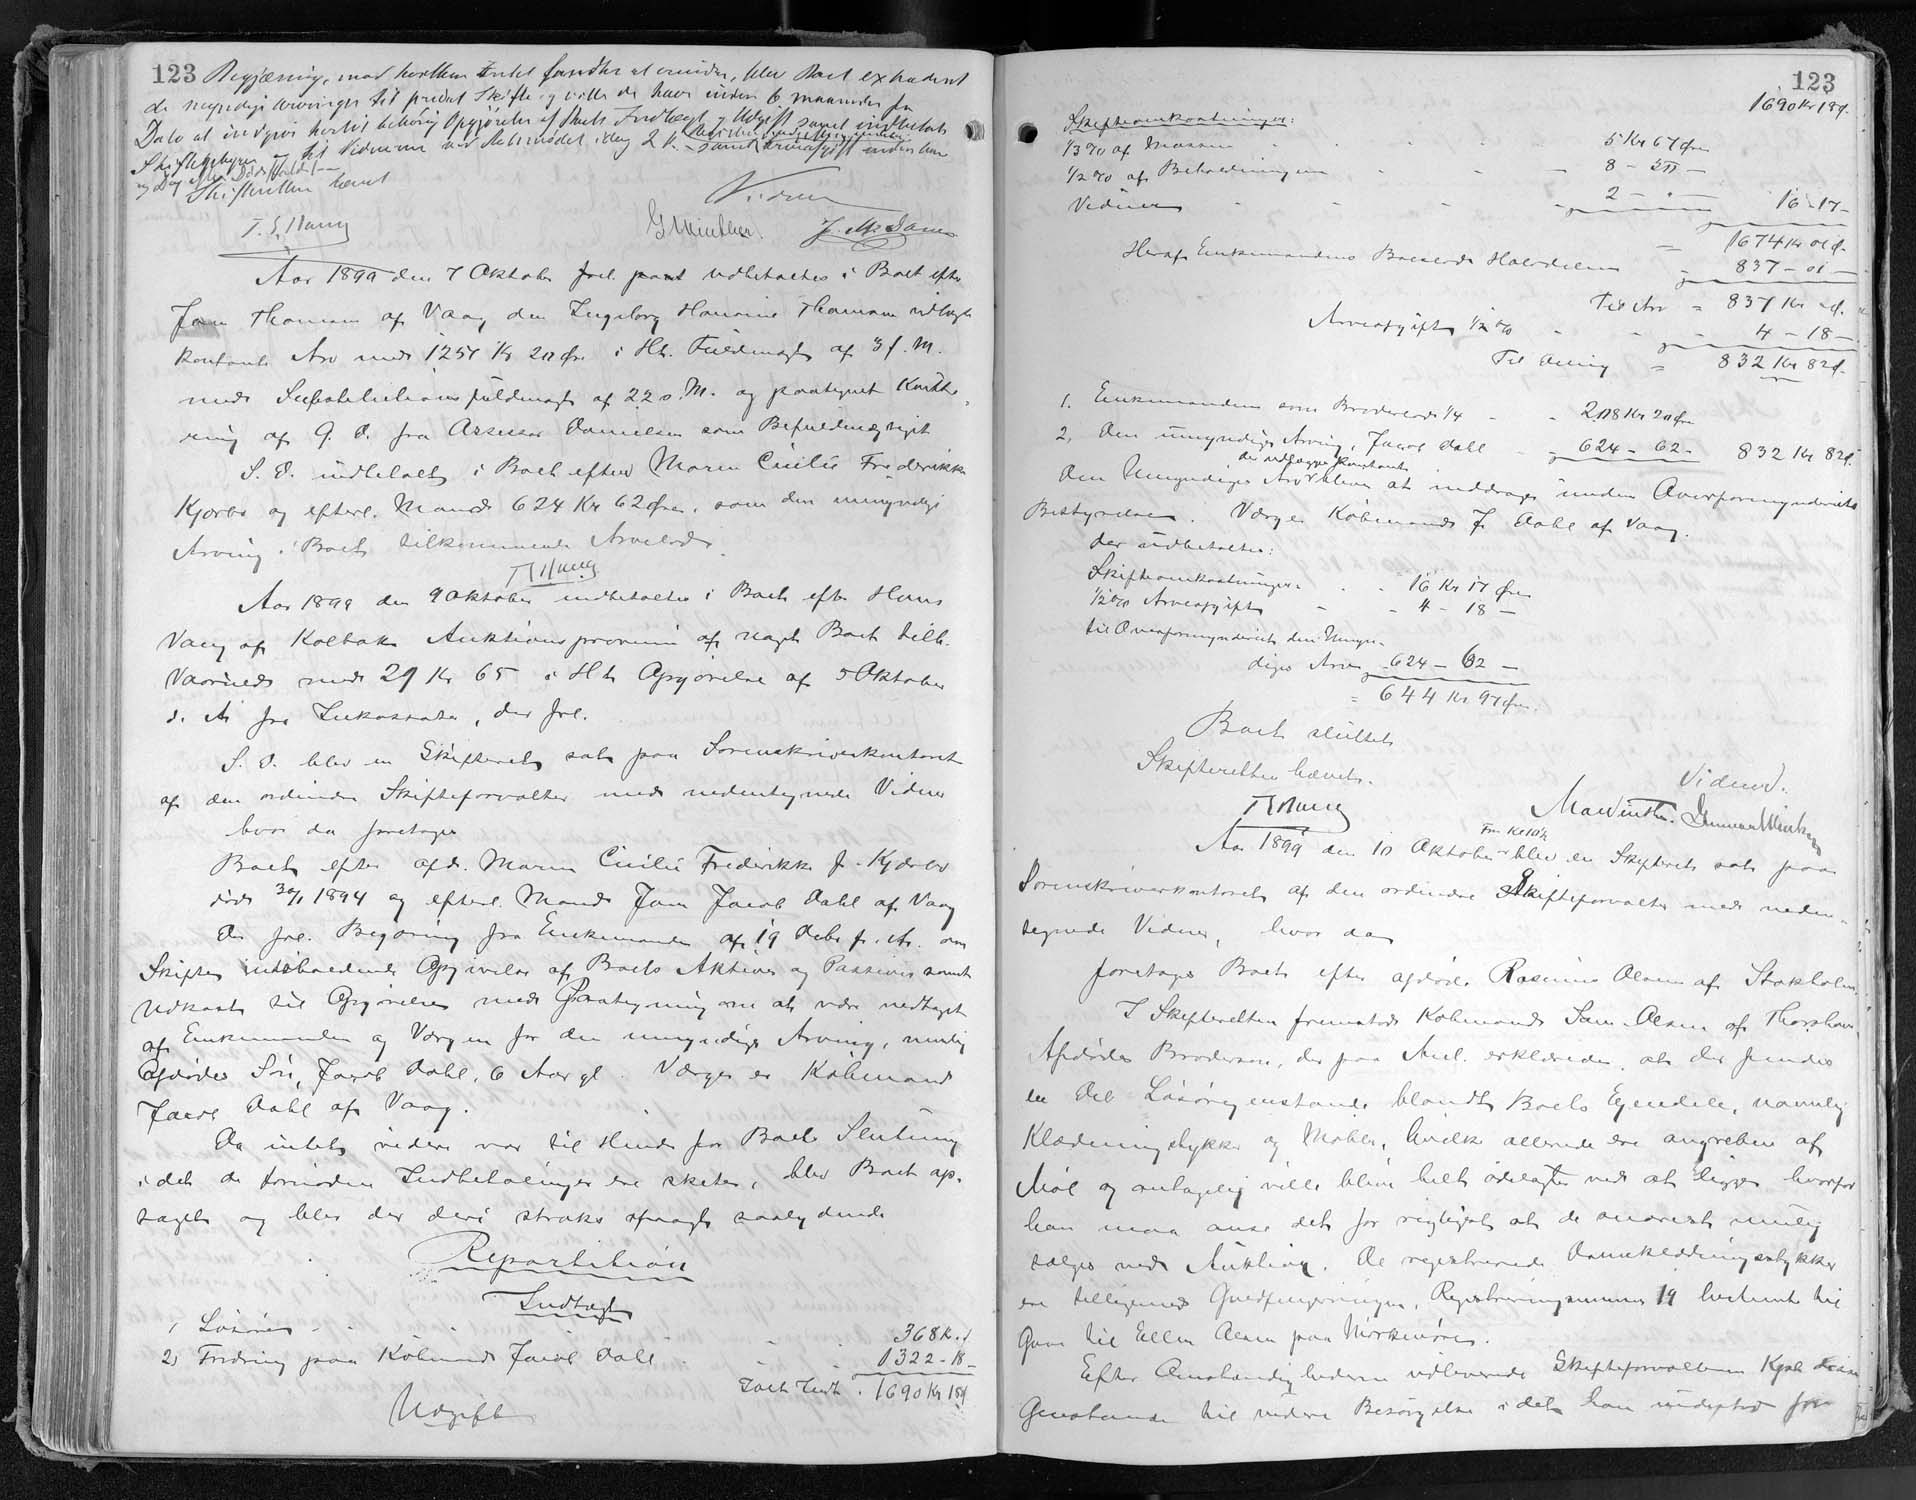 123 Begjæring, mod hvilken Intet fandtes at erindre, blev Boet extraderet
de myndige Arvinger til privat Skifte og ville de have inden 6 Maaneder fra
Dato at indgive hertil behørig Opgjørelse af Boets Indtægt og Udgift samt indbetale
Skiftegebyr og til Vidnerne ved Retsmødet idag 2 Kr. samt Arveafgift inden Aar
og Dag efter Dødsfaldet.
Skifteretten hævet
Vidner
G Winther. J. M. Dam
Aar 1899 den 7 Oktober frel. paat udbetaltes i Boet efter
Joen Thomsen af Vaag den Ingeborg Thomsen udlagte
kontante Arv med 1257 Kr 20 Øre i Hh. Fuldmagt af 3 f. M.
med Substitutionsfuldmagt af 22 s. M. og paategnet Kvitte-
ring af G. D. fra Assessor Danielsen som Befuldmægtiget
S. D. indbetalt i Boet efter Maren Cicilie Frederikke
Kjørbo og efterl. Mand 624 Kr 62 Øre, som den umyndige
Arving i Boet tilkommende Arvelod.
Aar 1899 den 9 Oktober indbetaltes i Boet efter Hans
Vang af Kolbak Auktionsprovenu af nogle Boet tilh.
med 29 Kr 65 i Hh Opgjørelse af 5 Oktober
d. A. fra, der frel.
S. D. blev en Skifteret sat paa Sorenskriverkontoret
af den ordinære Skifteforvalter med nedentegnede Vidner
hvor da foretoges
Boet efter afd. Maren Cicilie Frederikke f. Kjørbo
død 1894 og efterl. Mand Joen Jacob Dahl af Vaag
Der frel. Begæring fra Enkemanden af 19 Debr f. A. om
Skifte indeholdende Opgivelse af Boets Aktiver og Passiver samt
Udkast til Opgjørelse med Paategning om at være vedtaget
af Enkemanden og Værgen for den umyndige Arving, nemlig
Afdødes Søn, Jacob Dahl, 6 Aar gl. Værge er Købmand
Jacob Dahl af Vaag.
Da intet videre var til Hinder for Boets Slutning
idet de fornødne Indbetalinger ere skete, blev Boet op-
taget og blev der deri straks afsagt saalydende
Repartition
Indtægt
1, Løsøre - 368 Kr. "
2, Fordring paa Købmand Jacob Dahl - 1322 - 18 -
Ialt Indt. 1690 Kr 18 Ø
Udgift
123
1690 Kr 18 Ø.
Skifteomkostninger:
1/3 % af Massen - 5 Kr 67 Øre
1/2 % af Beholdningen - 8 - 50 -
Vidner - 2 - " - 16 - 17 -
1674 Kr 01 Ø.
Heraf Enkemandens Boeslods Halvdelen 837 - 01 -
Til Arv = 837 Kr " Ø.
Arveafgift 1/2 % - 4 - 18 -
Til Deling = 832 Kr 82 Ø.
1. Enkemanden som Broderlod 1/4 - 208 Kr 20 Øre
2, Den umyndige Arving, Jacob Dahl - 624 - 62 - 832 Kr 82 Ø.
der udlægges kontant
Den Umyndiges Arv bliver at inddrage under Overformynderiets
Bestyrelse. Værge Købmand J. Dahl af Vaag.
Der udbetaltes:
Skifteomkostninger - 16 Kr 17 Øre
1/2 % Arveafgift - 4 - 18 -
til Overformynderiet den Umyn-
diges Arv 624 - 62 -
= 644 Kr 97 Øre.
Boet sluttet
Skifteretten hævet.
Vidner.
Aar 1899 den 10 Oktober blev en Skifteret sat paa
Sorenskriverkontoret af den ordinære Skifteforvalter med neden-
tegnede Vidner, hvor da
foretoges Boet efter afdøde Rasmus Olsen af Stokholm.
I Skifteretten fremstod Købmand Sam. Olsen af Thorshavn
Afdødes Brodersøn, der paa Anl. erklærede, at der findes
en Del Løsøregenstande blandt Boets Ejendele, navnlig
Klædningstykker og Møbler, hvilke allerede ere angrebne af
Møl og antagelig ville blive helt ødelagte ved at ligge hvorfor
han maa anse det for rigtigst at de snarest mulig
sælges ved Auktion. De registrerede Dameklædningsstykker
ere tilligemed Guldfingerringen, Registreringsnummer 19 bestemte til
Gave til Ellen Olsen paa
Efter Omstændighederne udleverede Skifteforvalteren Kjøb disse
Genstande til videre Besørgelse idet han indestod for